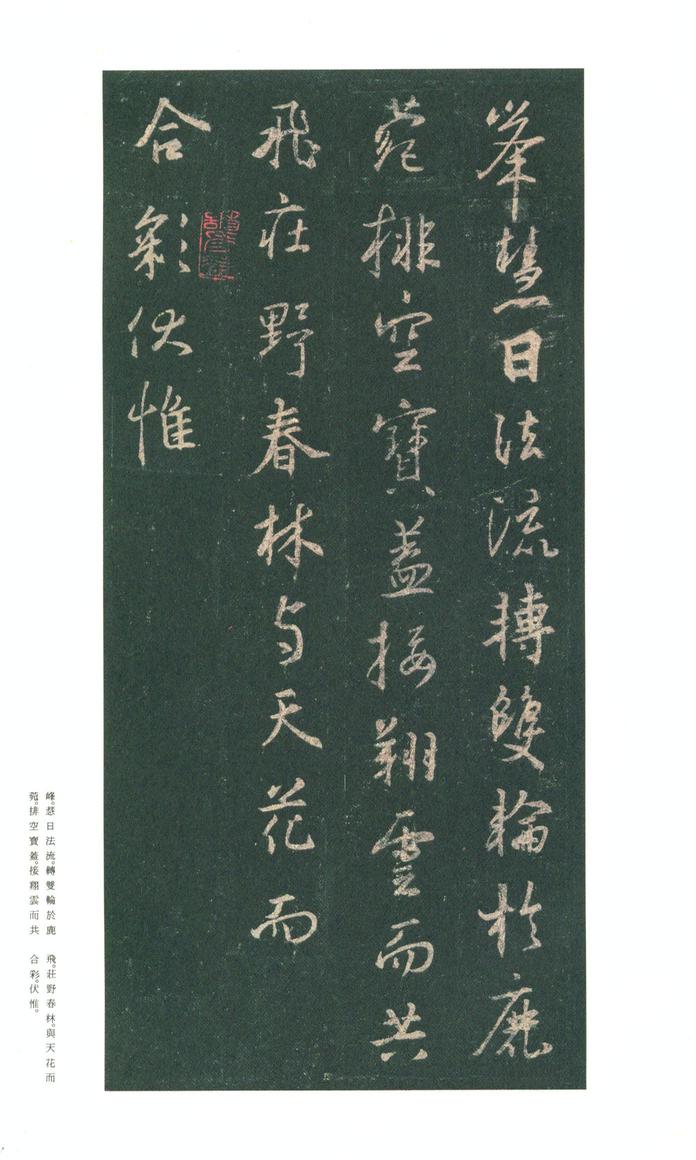 峯慧日法流轉雙輪於鹿
菀排空寶蓋接翔雲而共
飛莊野春林与天花而
合彩伏惟
峰。慧日法流。轉雙輪於鹿
菀。排空寶蓋。接翔雲而共
飛。莊野春林。與天花而
合彩。伏惟。